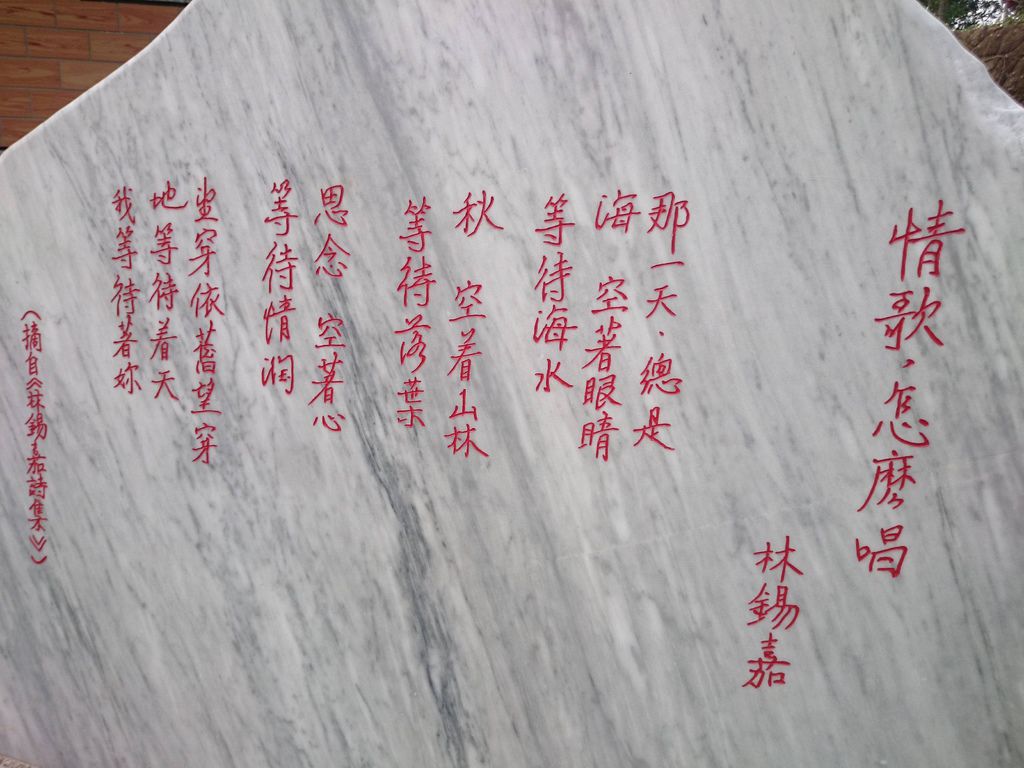 情歌，怎麽唱
林錫嘉
那一天．總是
海　空著眼睛
等待海水
秋　空着山林
等待落葉
思念　空著心
等待情潤
望穿依舊望穿
地等待着天
我等待著妳
（摘自《林錫嘉詩集》）